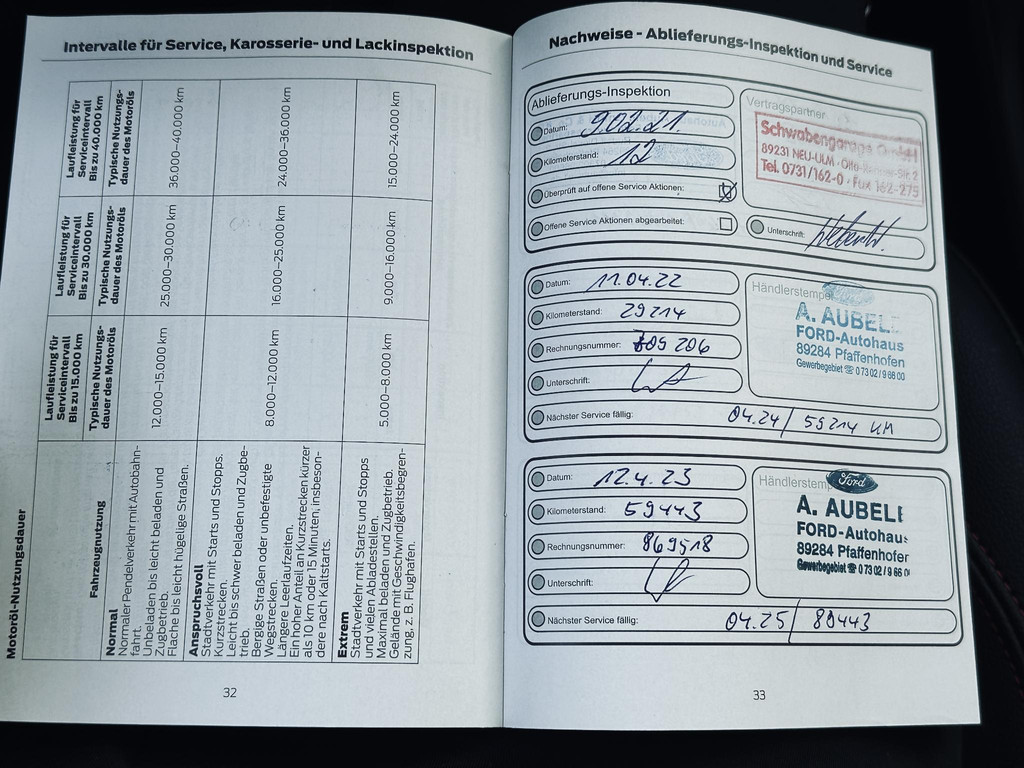 Intervalle für Service, Karosserie- und Lackinspektion
Motoröl-Nutzungsdauer
Fahrzeugnutzung
Laufleistung für
Serviceintervall
Bis zu 15.000 km
Typische Nutzungs-
dauer des Motoröls
Laufleistung für
Serviceintervall
Bis zu 30.000 km
Typische Nutzungs-
dauer des Motoröls
Laufleistung für
Serviceintervall
Bis zu 40.000 km
Typische Nutzungs-
dauer des Motoröls
Normal
Normaler Pendelverkehr mit Autobahn-
fahrt.
Unbeladen bis leicht beladen und
Zugbetrieb.
Flache bis leicht hügelige Straßen.
12.000–15.000 km
25.000–30.000 km
36.000–40.000 km
Anspruchsvoll
Stadtverkehr mit Starts und Stopps.
Kurzstrecken.
Leicht bis schwer beladen und Zugbe-
trieb.
Bergige Straßen oder unbefestigte
Wegstrecken.
Längere Leerlaufzeiten.
Ein hoher Anteil an Kurzstrecken kürzer
als 10 km oder 15 Minuten, insbeson-
dere nach Kaltstarts.
8.000–12.000 km
16.000–25.000 km
24.000–36.000 km
Extrem
Stadtverkehr mit Starts und Stopps
und vielen Abladestellen.
Maximal beladen und Zugbetrieb.
Gelände mit Geschwindigkeitsbegren-
zung, z. B. Flughäfen.
5.000–8.000 km
9.000–16.000 km
15.000–24.000 km
32
Nachweise - Ablieferungs-Inspektion und Service
Ablieferungs-Inspektion
Datum: 9.02.21.
Kilometerstand: 12
Überprüft auf offene Service Aktionen:
Offene Service Aktionen abgearbeitet:
Vertragspartner
Schwabengarage GmbH
89231 NEU-ULM · Otto- -Str. 2
Tel. 0731/162-0 · Fax 162-275
Unterschrift:
Datum: 11.04.22
Kilometerstand: 29214
Rechnungsnummer: 809206
Unterschrift:
Nächster Service fällig: 04.24 / 59214 KM
Händlerstempel
A. AUBELE
FORD-Autohaus
89284 Pfaffenhofen
Gewerbegebiet ☎ 0 73 02 / 9 66 00
Datum: 12.4.23
Kilometerstand: 59443
Rechnungsnummer: 869518
Unterschrift:
Nächster Service fällig: 04.25 / 89443
Händlerstem
Ford
A. AUBEL
FORD-Autohau
89284 Pfaffenhofer
Gewerbegebiet ☎ 0 73 02 / 9 66 0
33